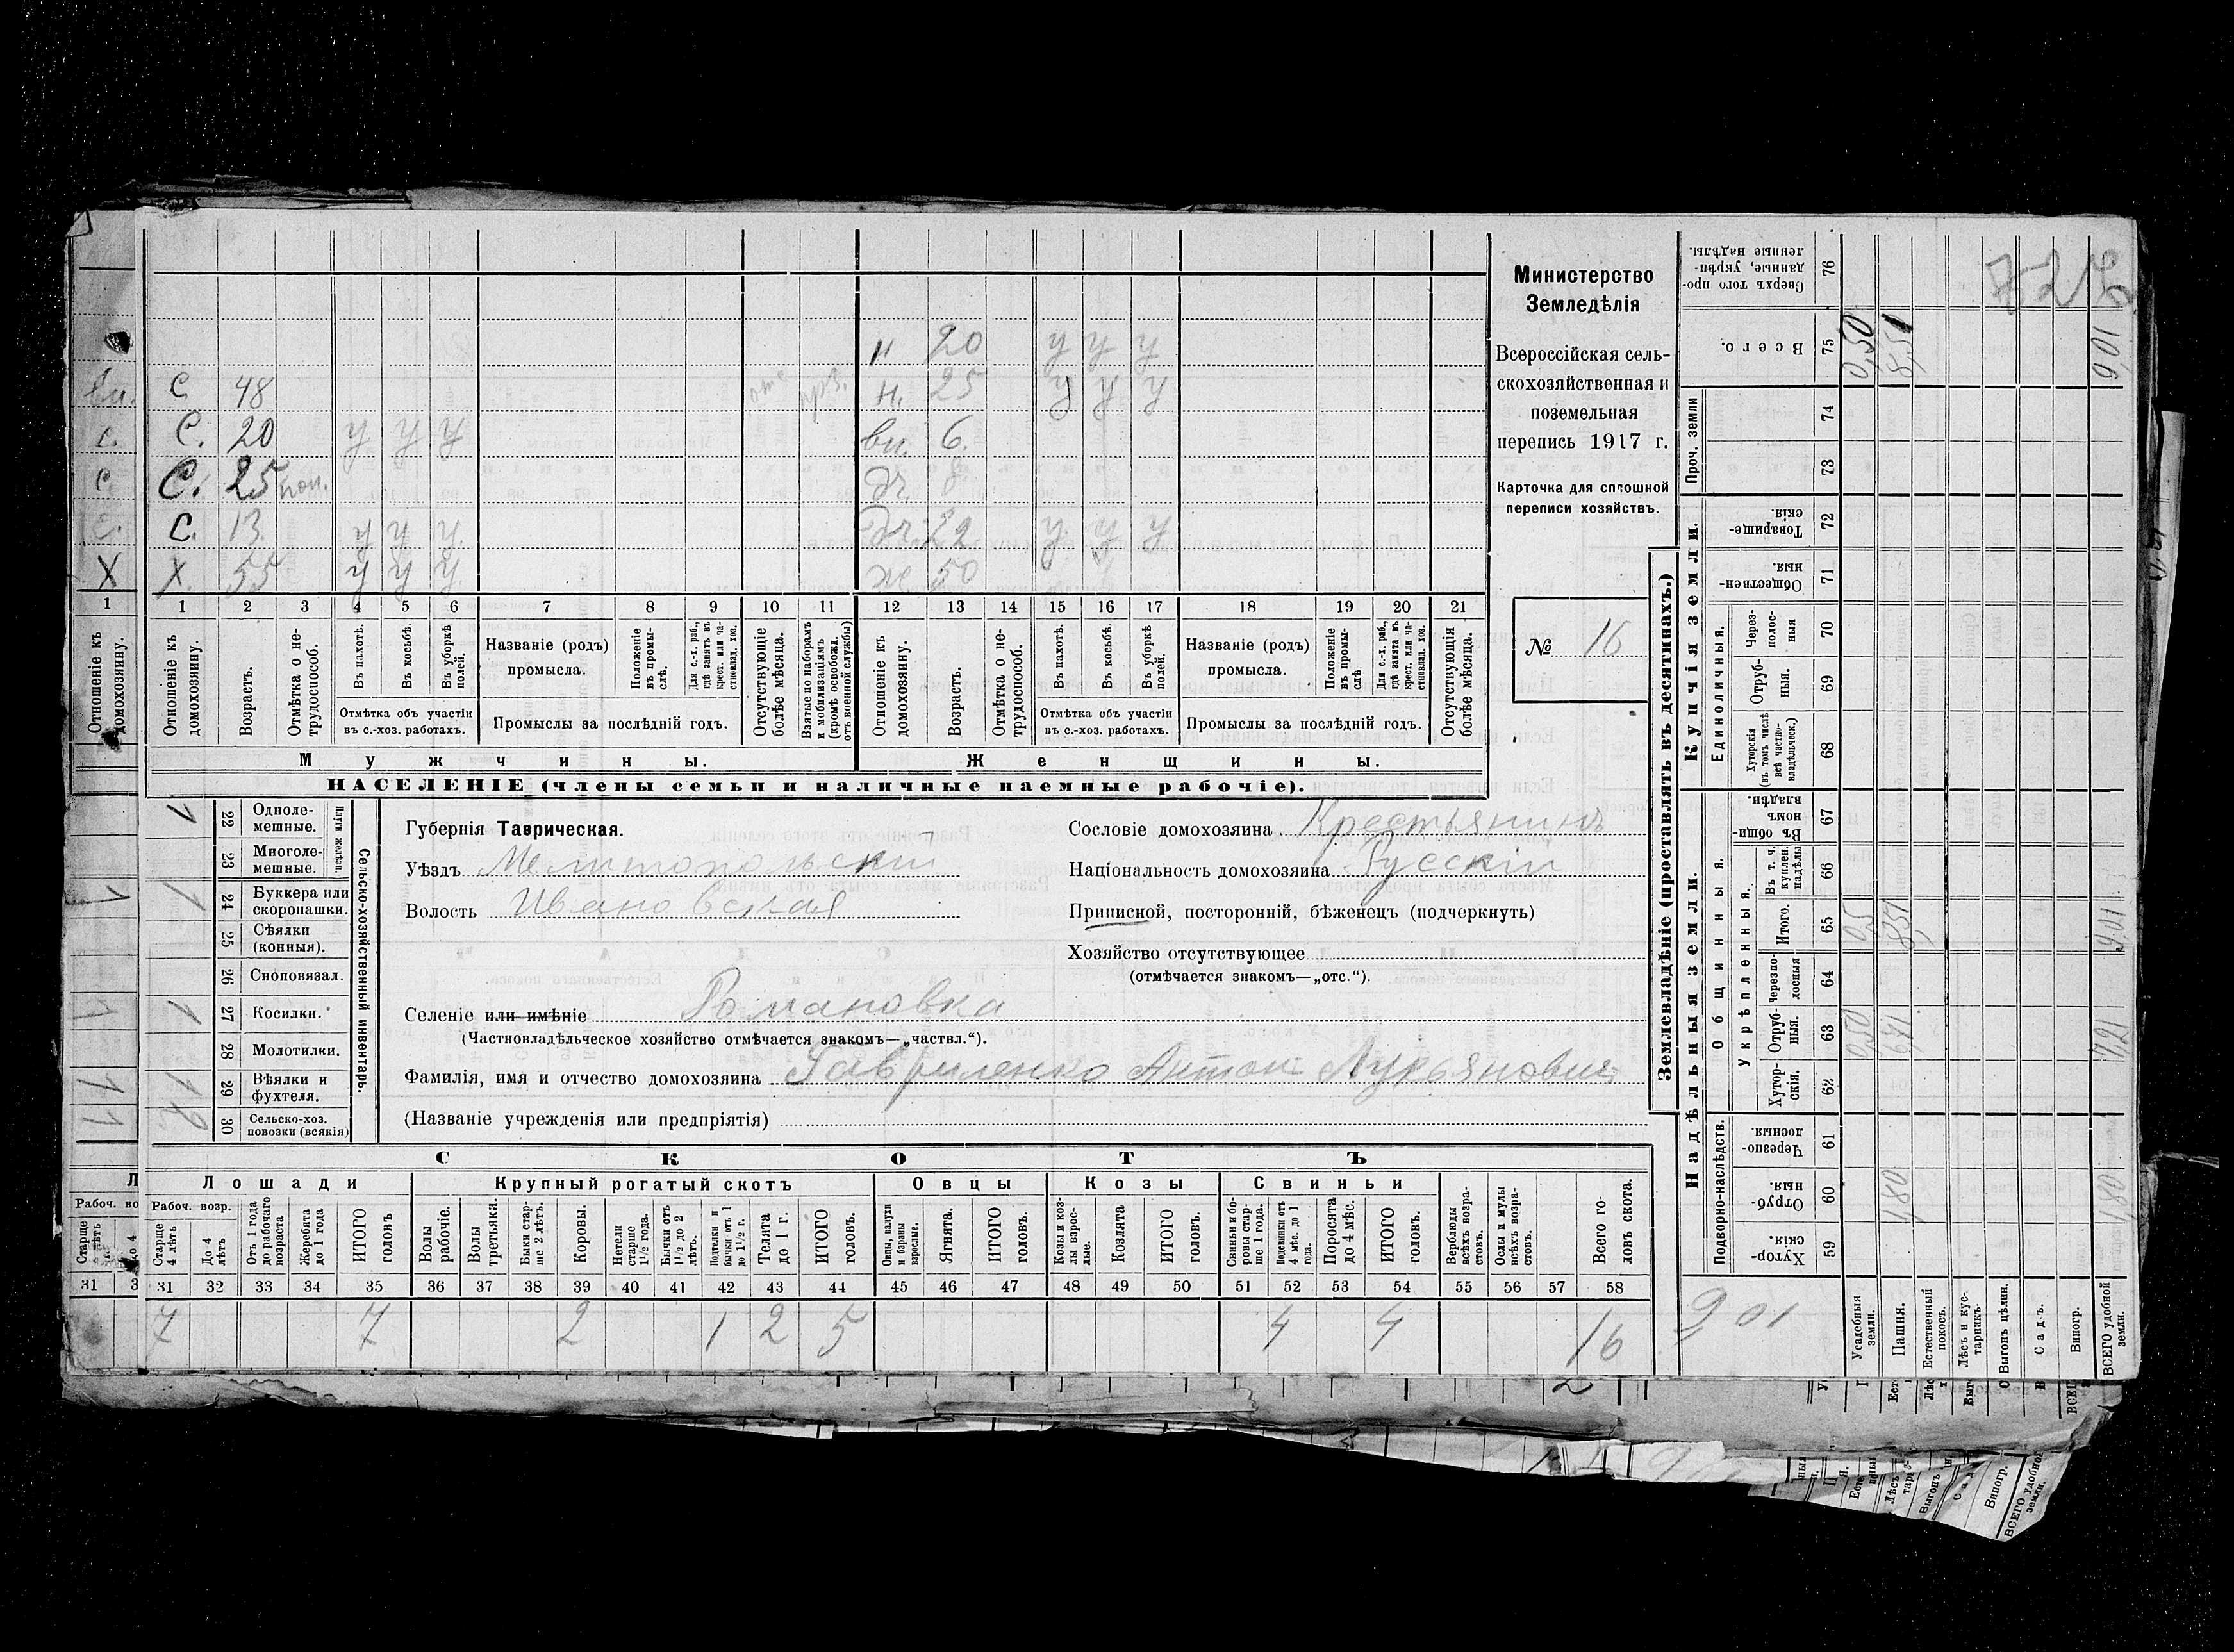 Министерство
Земледѣлія
Всероссійская сель-
скохозяйственная и
поземельная
перепись 1917 г.
Карточка для сплошной
переписи хозяйствъ.
№ 16
н 20 у у у
С 48 н. 25 у у у
С. 20 у у у вн. 6.
С. 25 дч.
С. 13 у у у дч. 22 у у у
Х. 55 у у у ж 50
1 2 3 4 5 6 7 8 9 10 11 12 13 14 15 16 17 18 19 20 21
Отношеніе къ домохозяину.
Возрастъ.
Отмѣтка о не-трудоспособ.
Въ пахотѣ.
Въ косьбѣ.
Въ уборкѣ полей.
Отмѣтка объ участіи въ с.-хоз. работахъ.
Названіе (родъ) промысла.
Положеніе въ промы-слѣ.
Для с.-х. раб., гдѣ занятъ въ крест. или ча-стновлад. хоз.
Промыслы за послѣдній годъ.
Отсутствующіе болѣе мѣсяца.
Взятые по наборамъ и мобилизаціямъ (кромѣ освобожд. отъ военной службы)
Отношеніе къ домохозяину.
Возрастъ.
Отмѣтка о не-трудоспособ.
Въ пахотѣ.
Въ косьбѣ.
Въ уборкѣ полей.
Отмѣтка объ участіи въ с.-хоз. работахъ.
Названіе (родъ) промысла.
Положеніе въ промы-слѣ.
Для с.-х. раб., гдѣ занята въ крест. или ча-стновлад. хоз.
Промыслы за послѣдній годъ.
Отсутствующія болѣе мѣсяца.
Мужчины. Женщины.
НАСЕЛЕНІЕ (члены семьи и наличные наемные рабочіе).
Сельско-хозяйственный инвентарь.
Плуги желѣзн.
22 Одноле-мешные.
23 Многоле-мешные.
1 24 Буккера или скоропашки.
25 Сѣялки (конныя).
26 Сноповязал.
1 27 Косилки.
28 Молотилки.
1 29 Вѣялки и фухтеля.
2 30 Сельско-хоз. повозки (всякія)
Губернія Таврическая.
Уѣздъ Мелитопольскій
Волость Ивановская
Сословіе домохозяина Крестьянинъ
Національность домохозяина Русскій
Приписной, посторонній, бѣженецъ (подчеркнуть)
Хозяйство отсутствующее
(отмѣчается знакомъ—„отс.“).
Селеніе или имѣніе Романовка
(Частновладѣльческое хозяйство отмѣчается знакомъ—„частвл.“).
Фамилія, имя и отчество домохозяина Гавриленко Антон Лукьянович
(Названіе учрежденія или предпріятія)
СКОТЪ
Лошади Крупный рогатый скотъ Овцы Козы Свиньи
Рабоч. возр.
Старше 4 лѣтъ
До 4 лѣтъ
Отъ 1 года до рабочаго возраста
Жеребята до 1 года
ИТОГО головъ
Волы рабочіе.
Волы третьяки.
Быки стар-ше 2 лѣтъ.
Коровы.
Нетели старше 1½ года.
Бычки отъ 1½ до 2 лѣтъ.
Подтелки и бычки отъ 1 до 1½ г.
Телята до 1 г.
ИТОГО головъ.
Овцы, валухи и бараны взрослые.
Ягнята.
ИТОГО головъ.
Козы и коз-лы взрос-лые.
Козлята
ИТОГО головъ.
Свиньи и бо-ровы стар-ше 1 года.
Подсвинки отъ 4 мѣс. до 1 года.
Поросята до 4 мѣс.
ИТОГО головъ.
Верблюды всѣхъ возра-стовъ.
Ослы и мулы всѣхъ возра-стовъ.
Всего го-ловъ скота.
31 32 33 34 35 36 37 38 39 40 41 42 43 44 45 46 47 48 49 50 51 52 53 54 55 56 57 58
7 7 2 1 2 5 4 4 16
Землевладѣніе (проставлять въ десятинахъ.)
Купчія земли.
Надѣльныя земли.
76 Сверхъ того про-данные, укрѣп-ленные надѣлы.
75 Всего. 0,50 8,51 9,01
Проч. земли
74
73
72 Товарище-скія.
71 Обществен-ныя.
Единоличныя.
70 Через-полос-ныя
69 Отруб-ныя.
68 Хуторскія (въ томъ числѣ всѣ частно-владѣльческ.)
Общинныя.
67 Въ общин-номъ владѣн.
Укрѣпленныя.
66 Въ т. ч. куплен. надѣлы
65 Итого. 8,51 9,01
64 Черезпо-лосныя
63 Отруб-ныя. 0,50 6,71 7,21
62 Хутор-скія.
Подворно-наслѣдств.
61 Черезпо-лосныя.
60 Отруб-ныя. 1,80 1,80
59 Хутор-скія.
9 01
Усадебныя земли.
Пашня.
Естественный покосъ.
Лѣсъ и кус-тарникъ.
Выгонъ цѣлин.
Садъ.
Виногр.
ВСЕГО удобной земли.